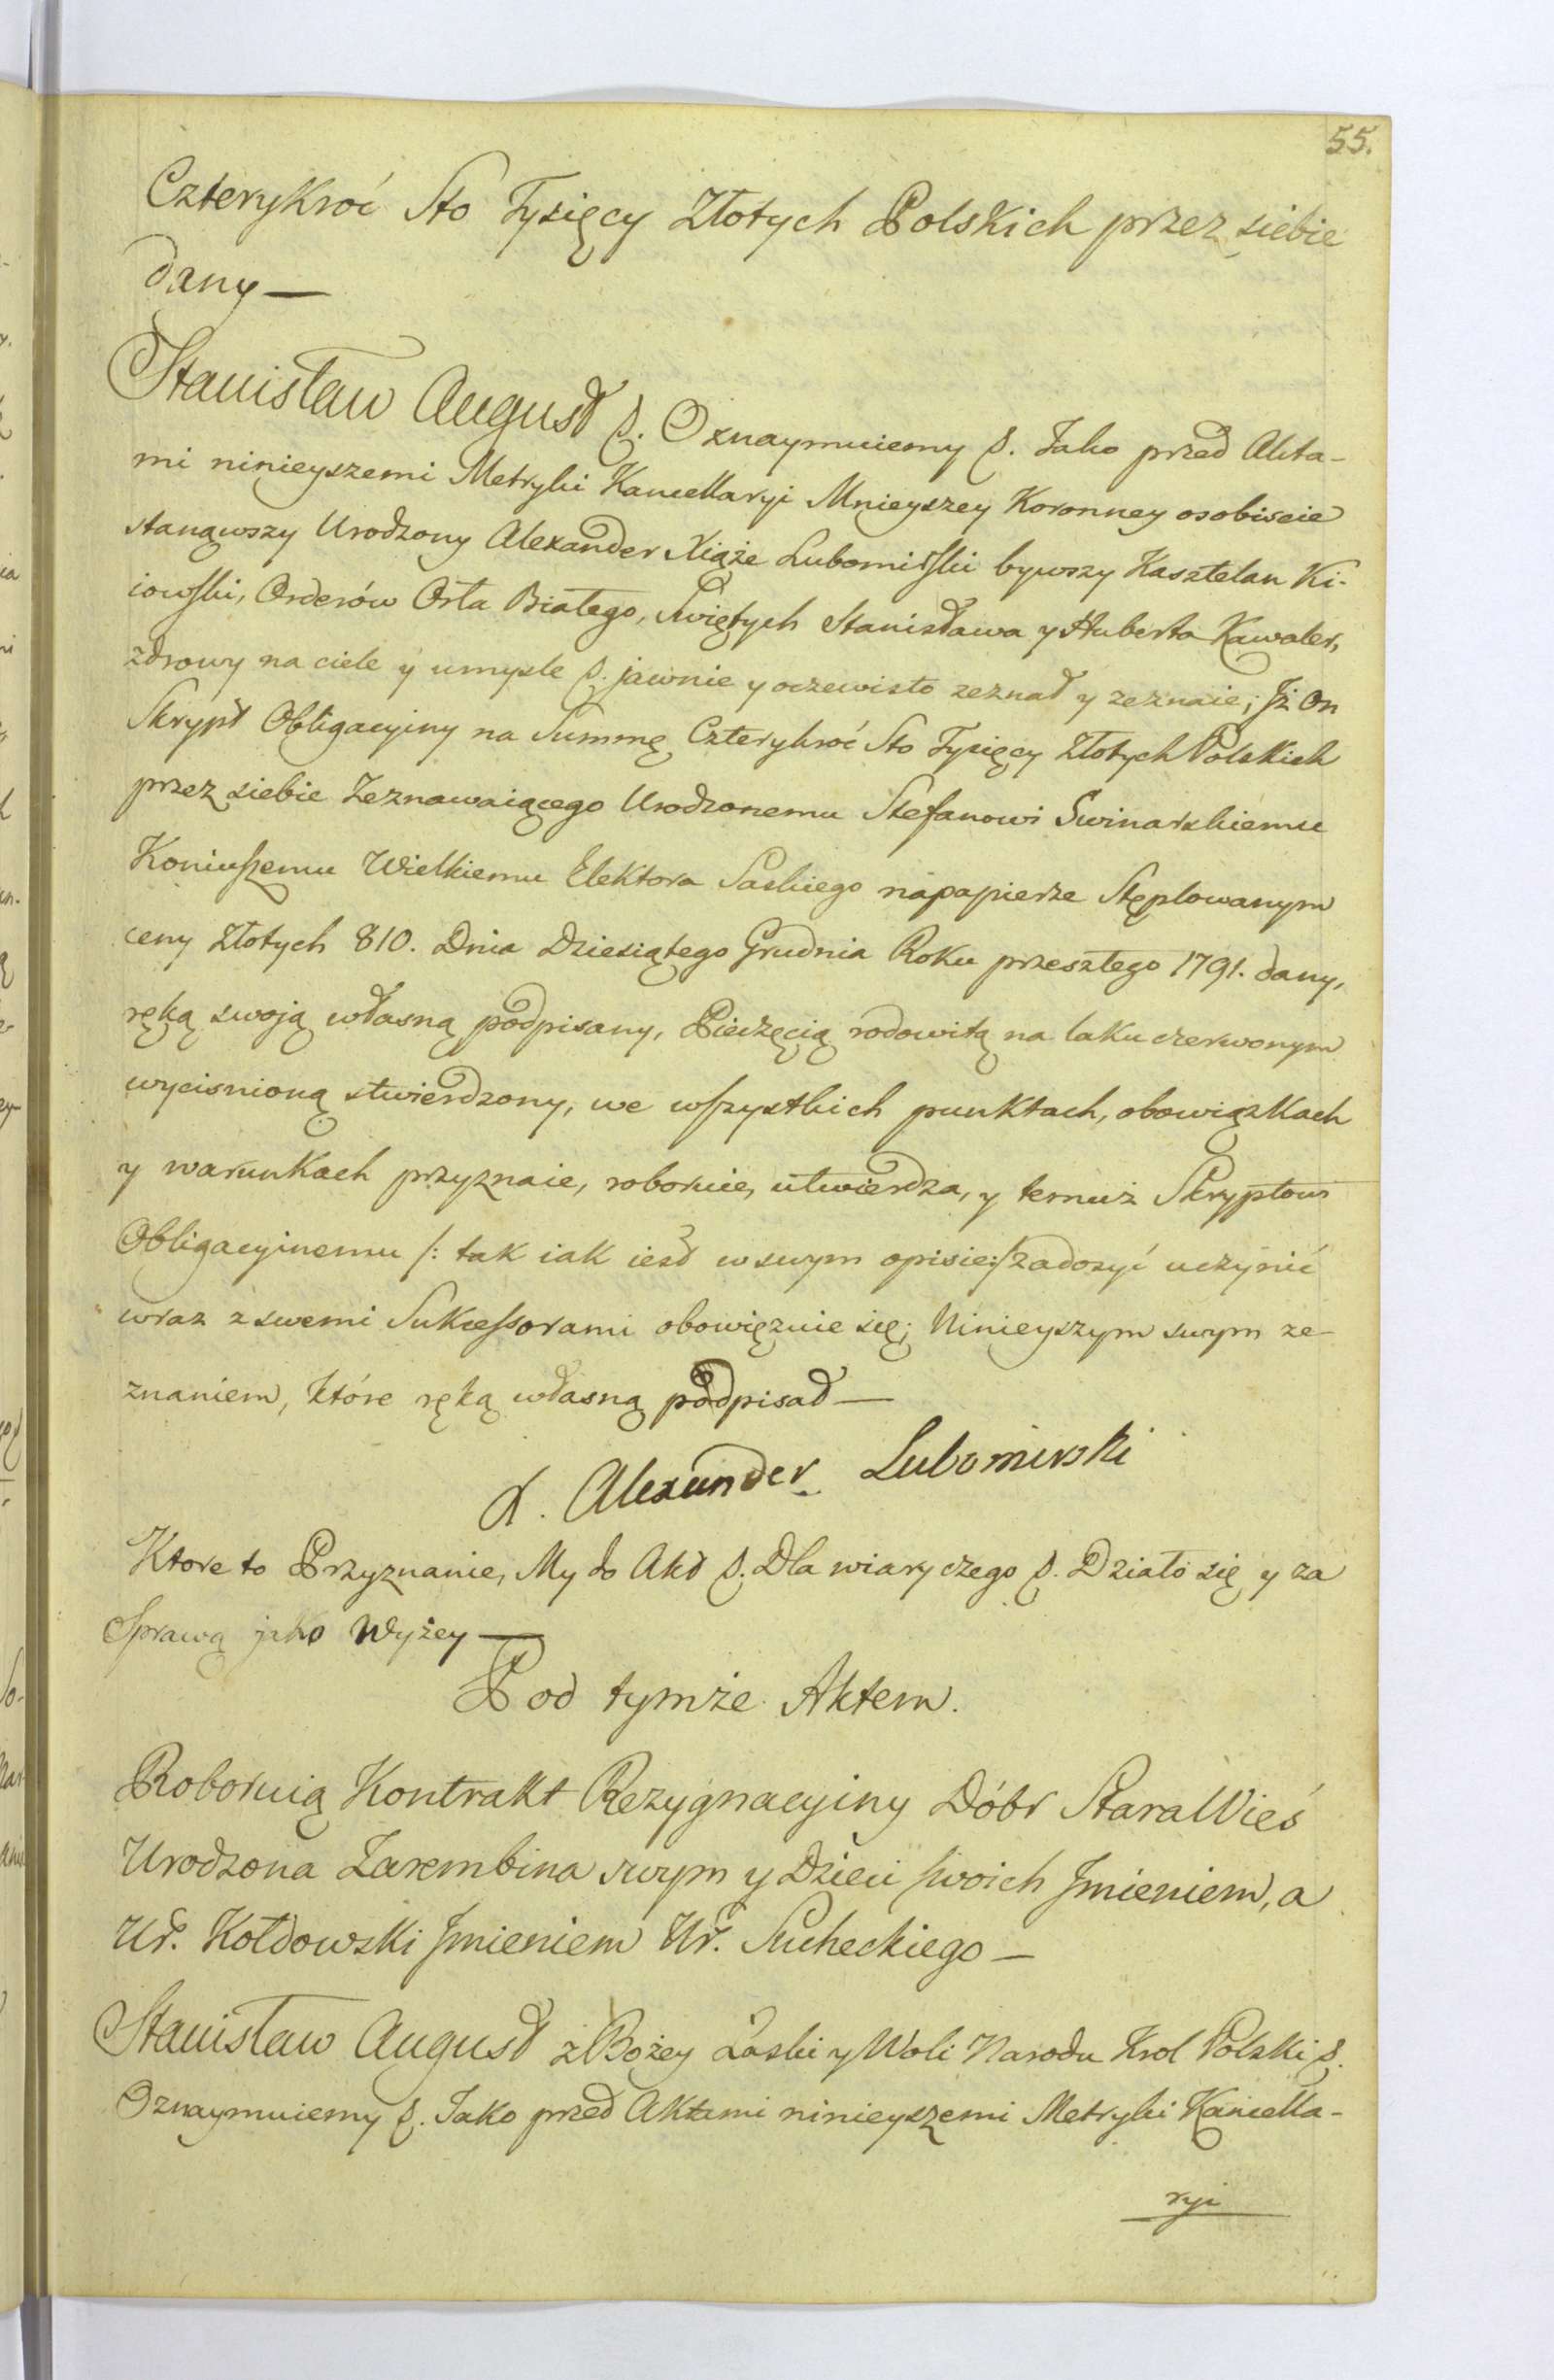 55.
Czterykroć Sto Tysięcy Złotych Polskich przez siebie
dany —
Stanisław August p. Oznaymuiemy p. Jako przed Akta-
mi ninieyszemi Metryki Kancellaryi Mnieyszey Koronney osobiscie
stanąwszy Urodzony Alexander Xiąże Lubomirski bywszy Kasztelan Ki-
iowski, Orderów Orła Białego, Swiętych Stanisława y Huberta Kawaler,
zdrowy na ciele y umysle p. jawnie y oczewisto zeznał y zeznaie; Jż on
Skrypt Obligacyiny na Summę Czterykroć Sto Tysięcy Złotych Polskich
przez siebie Zeznawaiącego Urodzonemu Stefanowi Swinarskiemu
Koniuszemu Wielkiemu Elektora Saskiego na papierze Stęplowanym
ceny Złotych 810. Dnia Dziesiątego Grudnia Roku przeszłego 1791. dany,
ręką swoją własną podpisany, Pieczęcią rodowitą na laku czerwonym
wycisnioną stwierdzony, we wszystkich punktach, obowiązkach
y warunkach przyznaie, roboruie, utwierdza, y temuż Skryptowi
Obligacyinemu /: tak iak iest w swym opisie :/ zadosyć uczynić
wraz z swemi Sukcessorami obowięzuie się; Ninieyszym swym ze-
znaniem, które ręką własną podpisał —
X. Alexander Lubomirski
Ktore to Przyznanie, My do Akt p. Dla wiary czego p. Działo się y za
Sprawą jako Wyżey —
Pod tymże Aktem.
Roboruią Kontrakt Rezygnacyiny Dóbr Stara Wieś
Urodzona Zarembina swym y Dzieci swoich Jmieniem, a
Ur. Kołdowski Jmieniem Ur. Sucheckiego —
Stanisław August z Bożey Łaski y Woli Narodu Krol Polski p.
Oznaymuiemy p. Jako przed Aktami ninieyszemi Metryki Kancella-
ryi